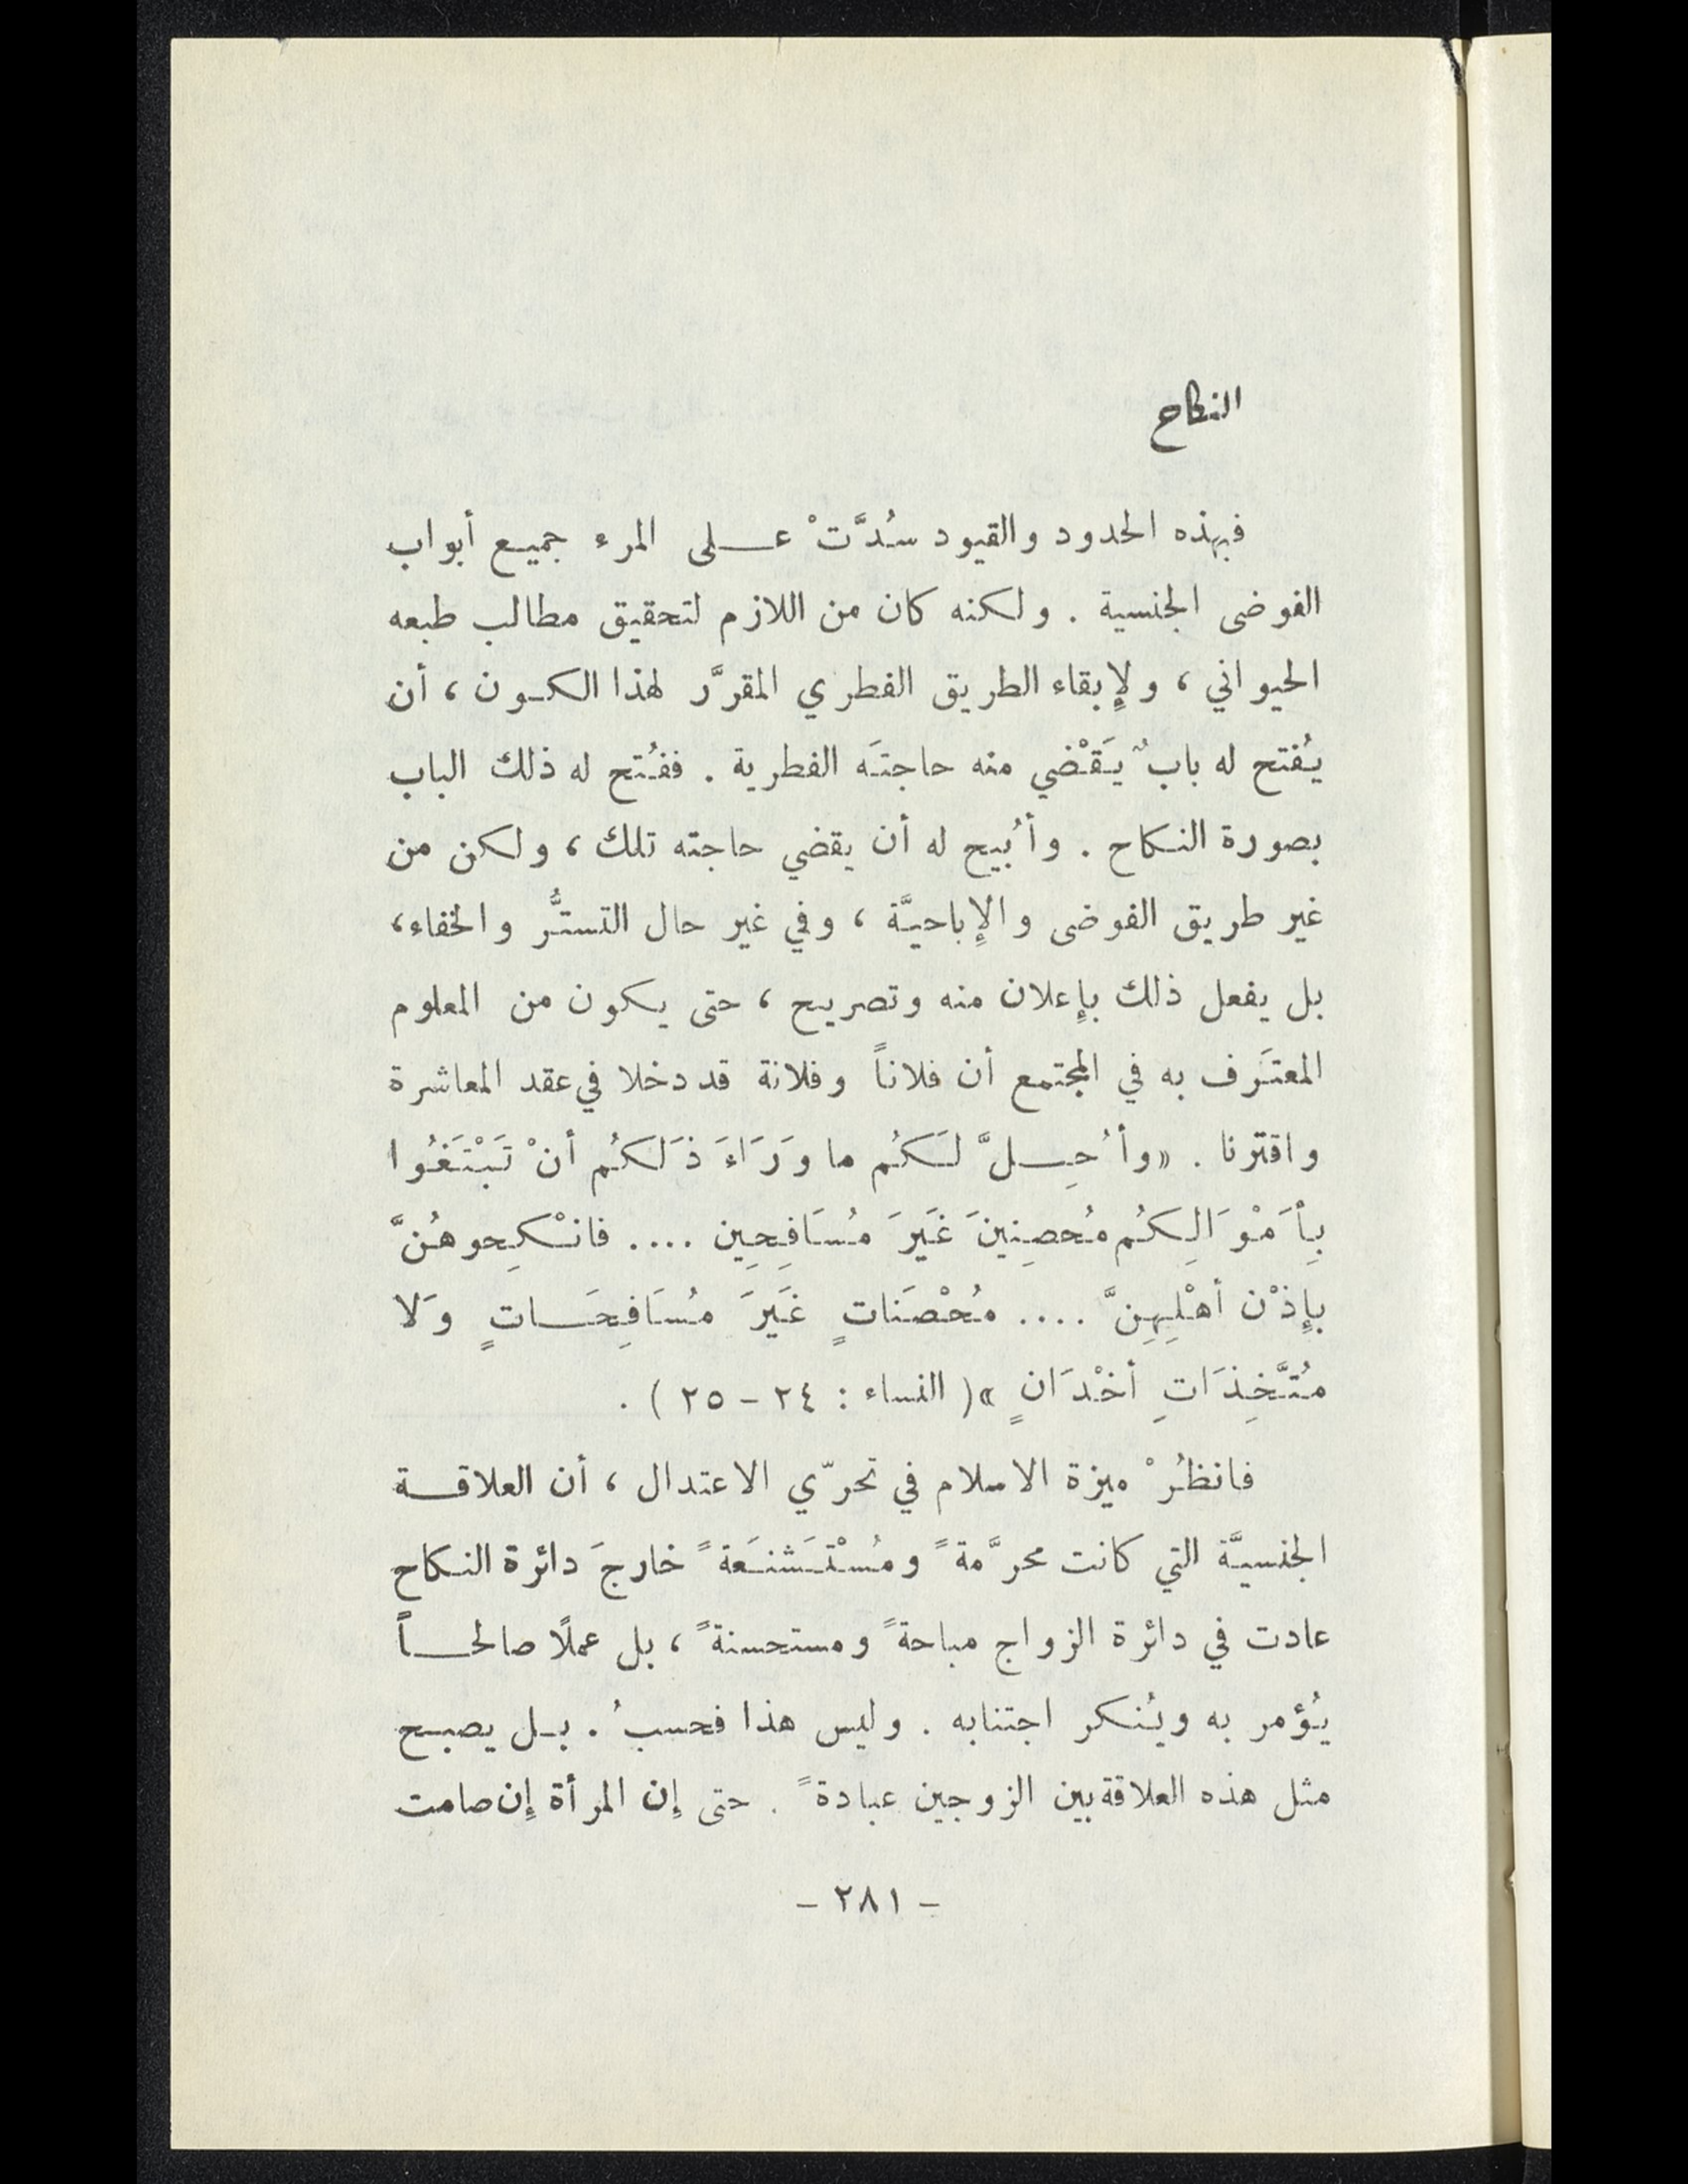 النكاح
فبهذه الحدود والقيود سُدَّتْ عـلى المرء جميع أبواب
الفوضى الجنسية . ولكنه كان من اللازم لتحقيق مطالب طبعه
الحيواني ، ولإِبقاء الطريق الفطري المقرَّر لهذا الكون ، أن
يُفتح له بابٌ يَقْضي منه حاجتَه الفطرية . ففُتح له ذلك الباب
بصورة النكاح . وأُبيح له أن يقضي حاجته تلك ، ولكن من
غير طريق الفوضى والإِباحيَّة ، وفي غير حال التستُّر والخفاء ،
بل يفعل ذلك بإِعلان منه وتصريح ، حتى يكون من المعلوم
المعتَرف به في المجتمع أن فلاناً وفلانة قد دخلا في عقد المعاشرة
واقترنا . «وأُحِلَّ لَكُم ما وَرَاءَ ذَلكُم أنْ تَبْتَغُوا
بِأَمْوَالِكُم مُحصِنِينَ غَيرَ مُسَافِحِين .... فانْكِحوهُنَّ
بإِذْن أهْلِهِنَّ .... مُحْصَنَاتٍ غَيرَ مُسَافِحَاتٍ وَلا
مُتَّخِذَاتِ أخْدَانٍ » ( النساء : ٢٤ – ٢٥ ) .
فانظُرْ ميزة الاسلام في تحرّي الاعتدال ، أن العلاقة
الجنسيَّة التي كانت محرَّمةً ومُسْتَشنَعةً خارجَ دائرة النكاح
عادت في دائرة الزواج مباحةً ومستحسنةً ، بل عملًا صالحاً
يُؤمر به ويُنكر اجتنابه . وليس هذا فحسبُ . بل يصبح
مثل هذه العلاقة بين الزوجين عبادةً . حتى إِن المرأة إِن صامت
– ٢٨١ –